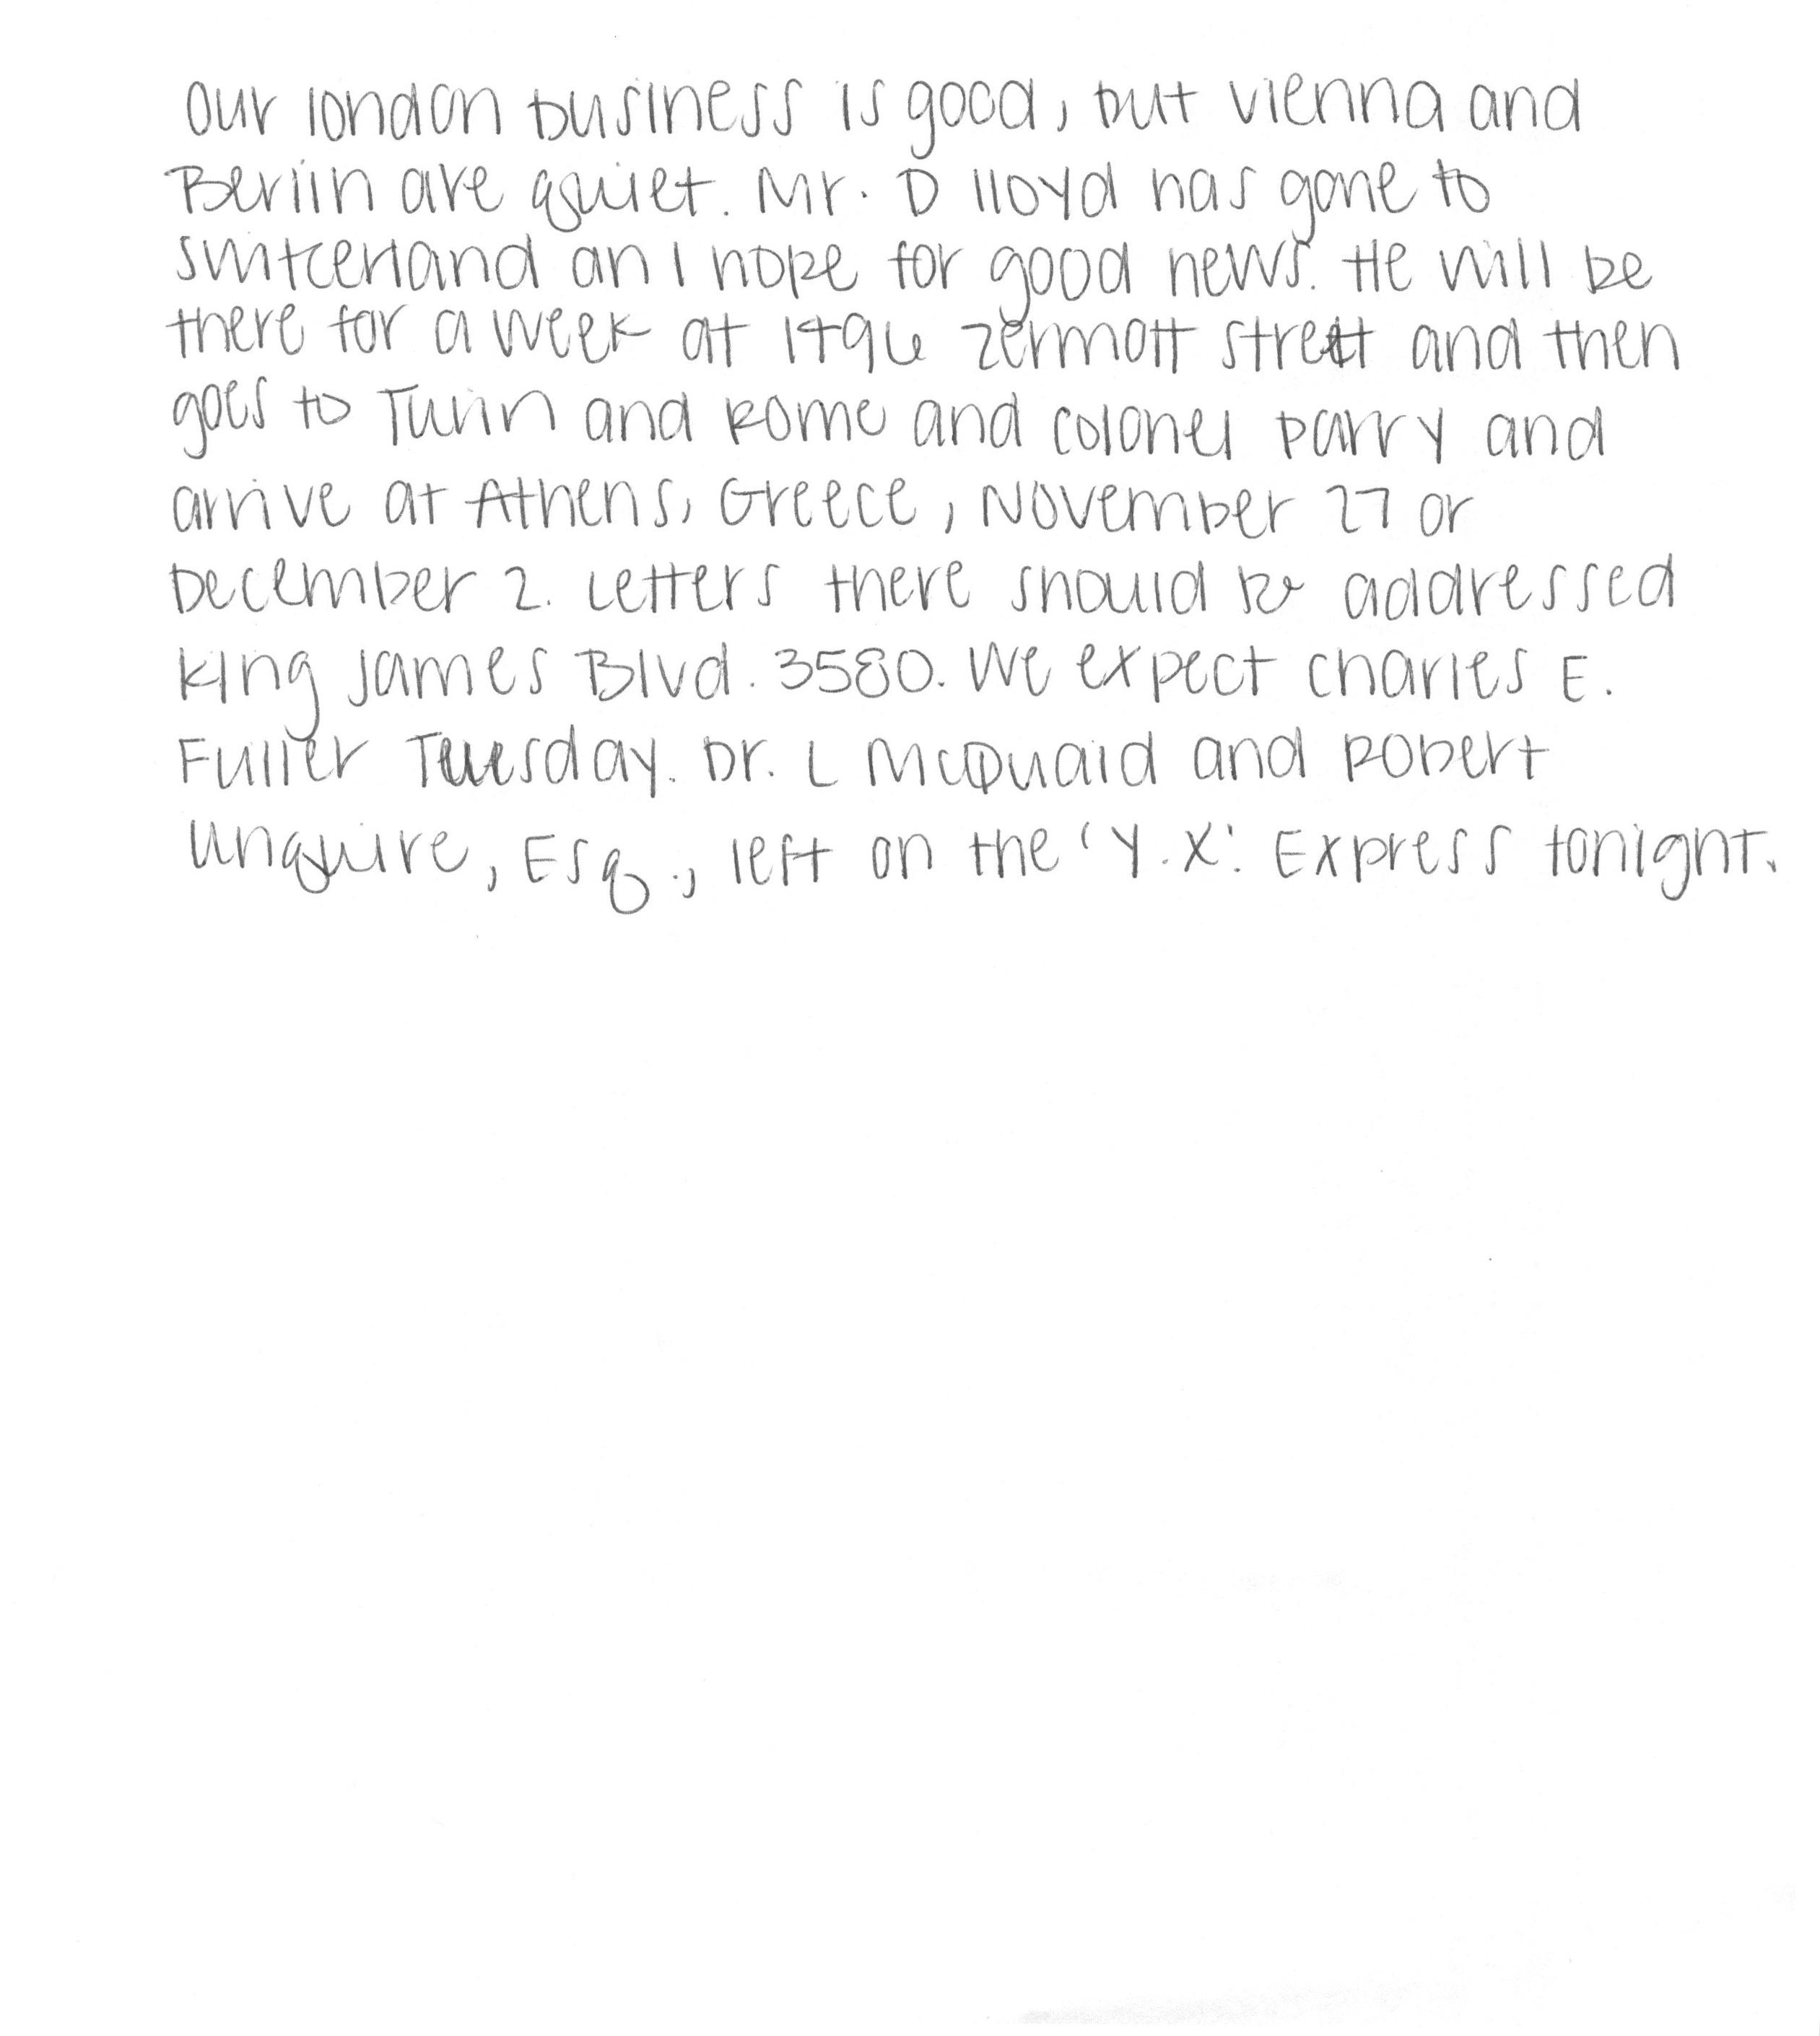 Our london business is good, but vienna and
Berlin are quiet. Mr. D lloyd has gone to
switcerland an I hope for good news. He will be
there for a week at 1496 zermott street and then
goes to Turin and Rome and colonel parry and
arrive at Athens, Greece, November 27 or
December 2. Letters there should be addressed
King James Blvd. 3580. We expect charles E.
Fuller Tuesday. Dr. L McQuaid and Robert
Unquire, Esq., left on the 'Y.X.' Express tonight.